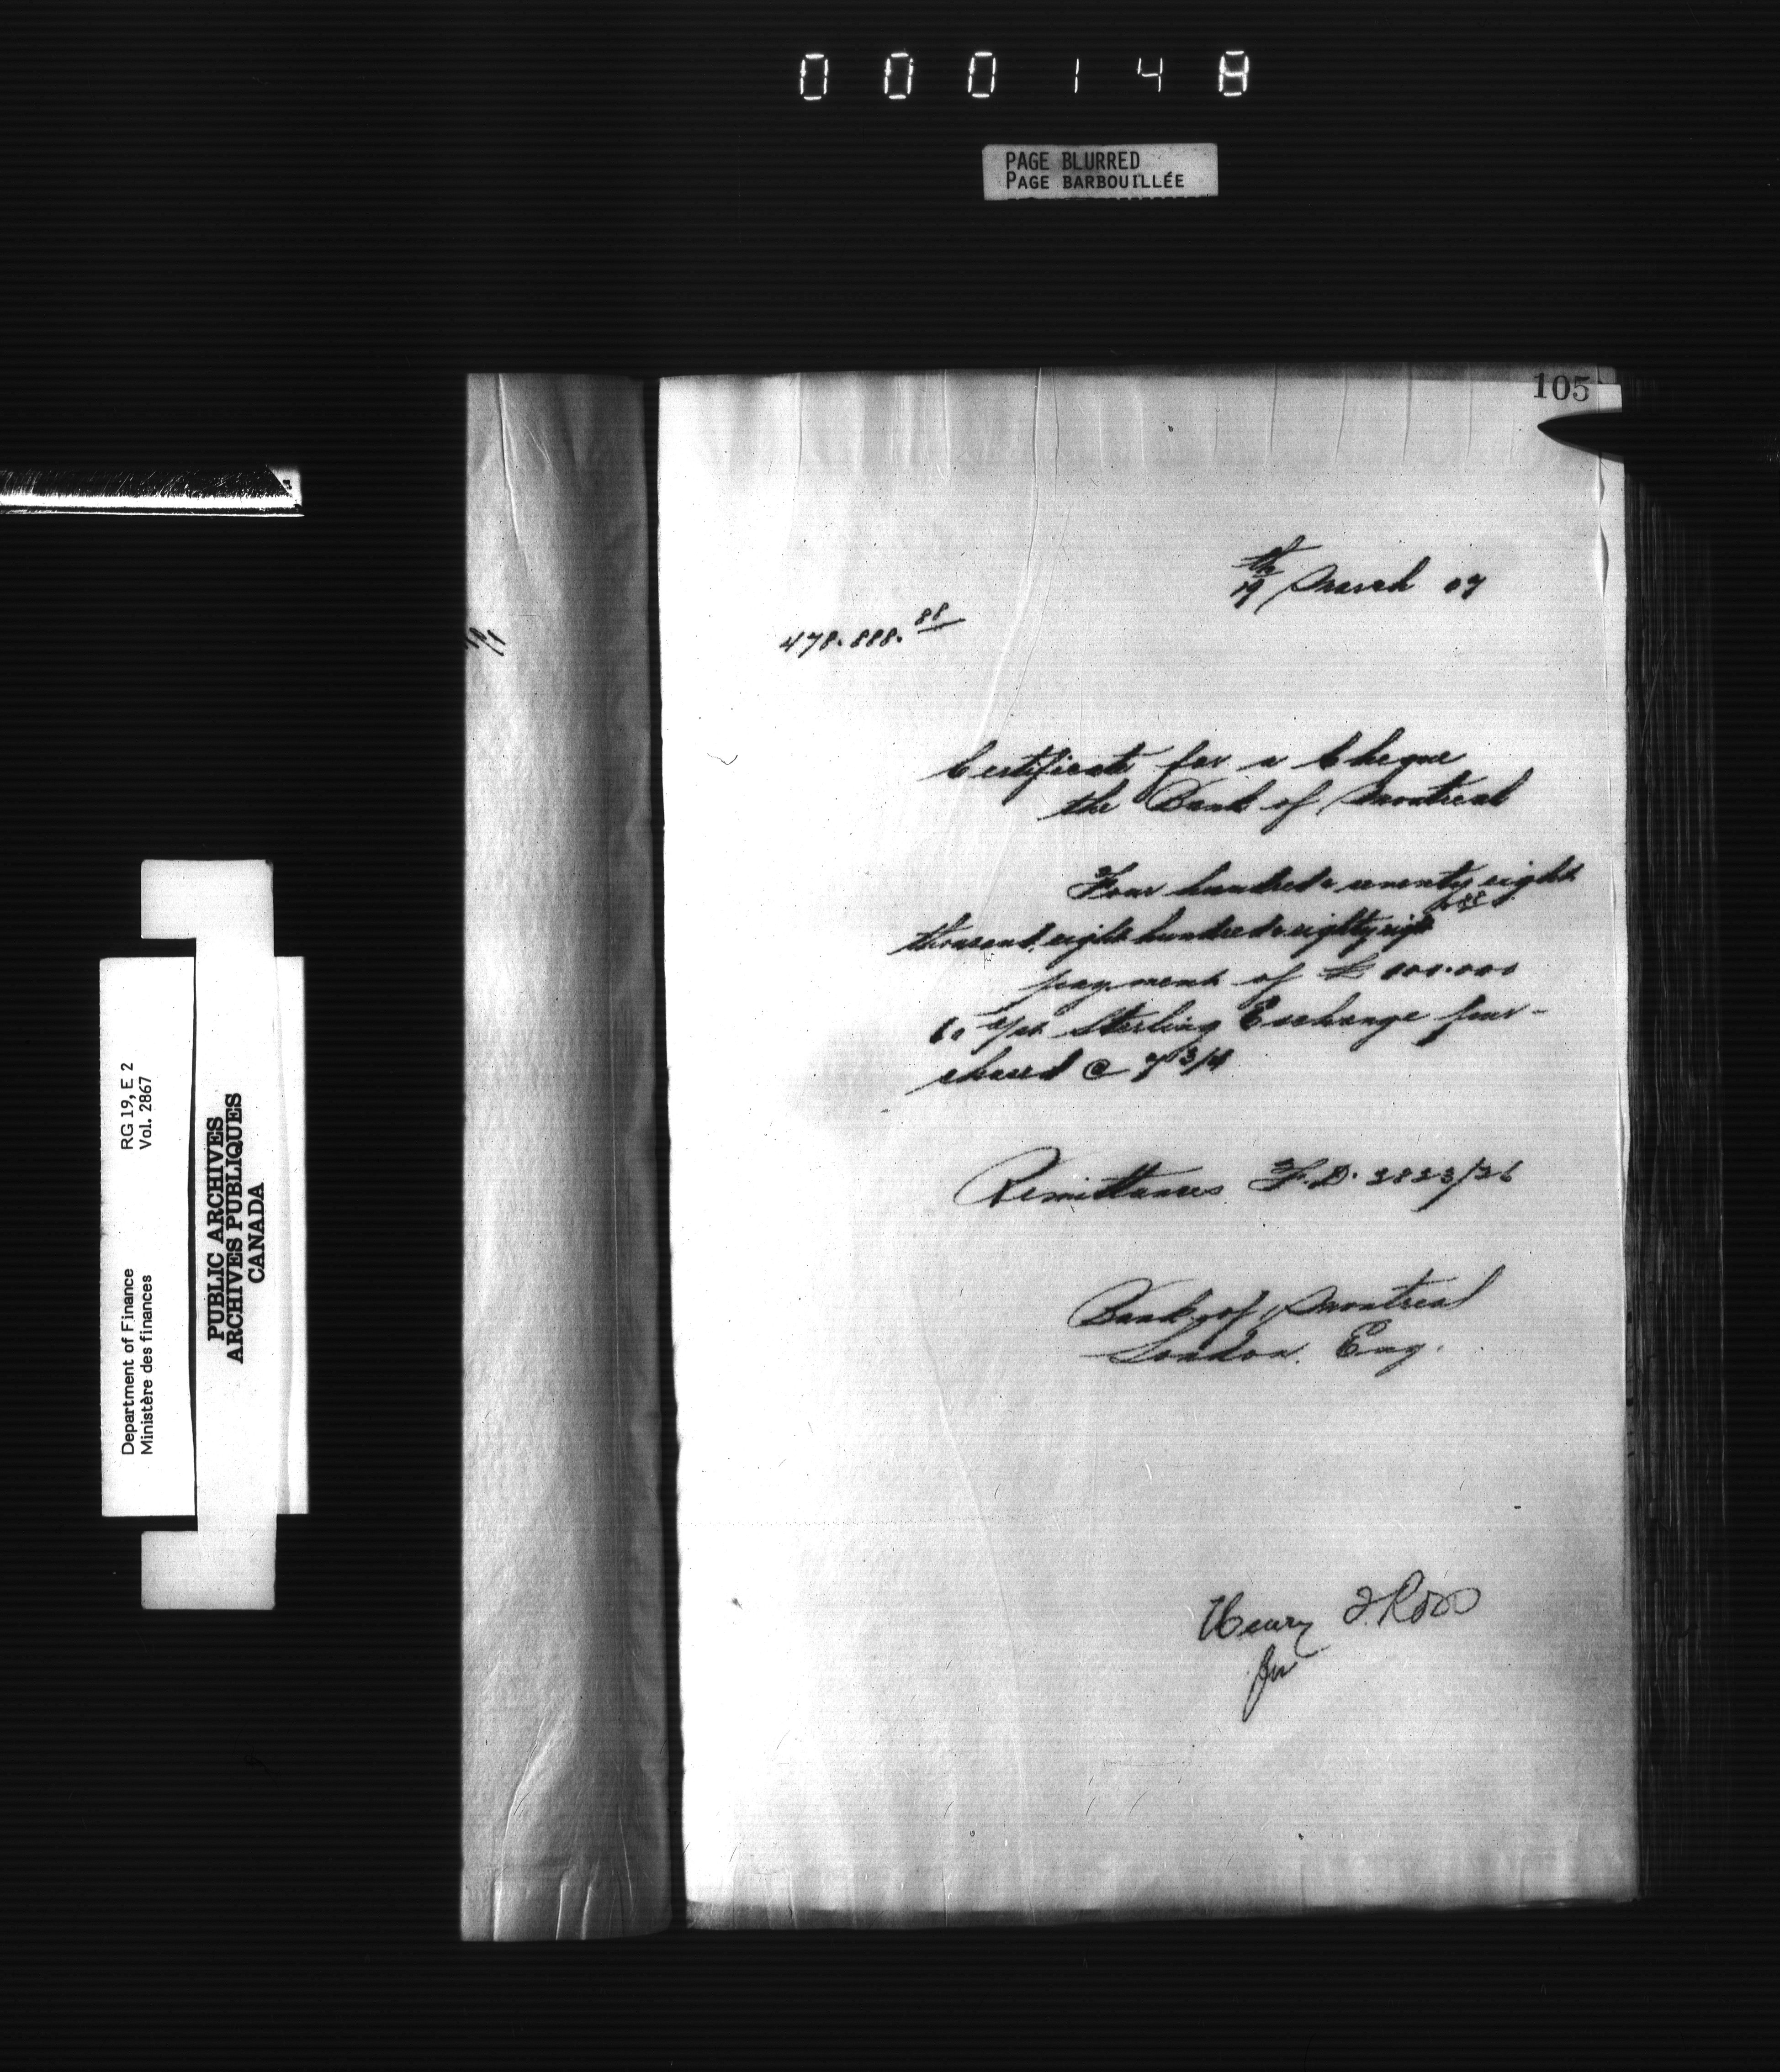 000148
PAGE BLURRED
PAGE BARBOUILLÉE
105
19th March 07
478.888.88
Certificate for a Cheque
the Bank of Montreal
Four hundred & seventy eight
thousand, eight hundred & eighty eight 88
payment of £ 100.000
60 d/st Sterling Exchange pur-
chased @ 7 3/4
Remittances F.D. 2823/26
Bank of Montreal
London. Eng.
Henry T. Ross
for
RG 19, E 2
Vol. 2867
Department of Finance
Ministère des finances
PUBLIC ARCHIVES
ARCHIVES PUBLIQUES
CANADA